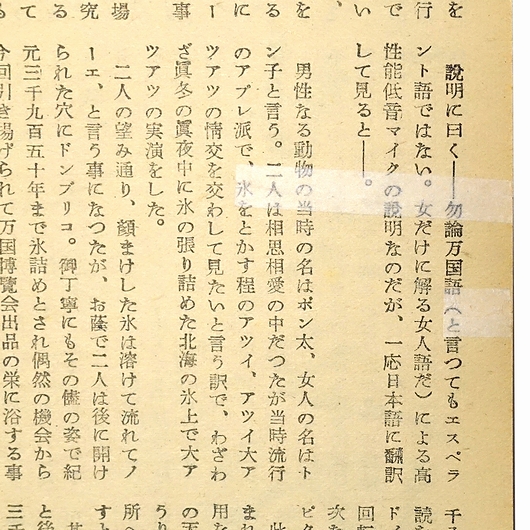 を
行
で
い
説明に曰く――勿論万国語（と言つてもエスペラ
ント語ではない。女だけに解る女人語だ）による高
性能低音マイクの説明なのだが、一応日本語に翻訳
して見ると――。
男性なる動物の当時の名はポン太、女人の名はト
ン子と言う。二人は相思相愛の中だつたが当時流行
のアプレ派で、氷をとかす程のアツイ、アツイ大ア
ツアツの情交を交わして見たいと言う訳で、わざわ
ざ眞冬の眞夜中に氷の張り詰めた北海の氷上で大ア
ツアツの実演をした。
二人の望み通り、顔まけした氷は溶けて流れてノ
ーエ、と言う事になつたが、お蔭で二人は後に開け
られた穴にドンブリコ。御丁寧にもその儘の姿で紀
元三千九百五十年まで氷詰めとされ偶然の機会から
今回引き揚げられて万国博覧会出品の栄に浴する事
を
る
に
ー
事
場
究
て
る
千
読
ド
回
次
ピ
此
まれ
用を
の王
うり
所へ
すト
其
と後
三千